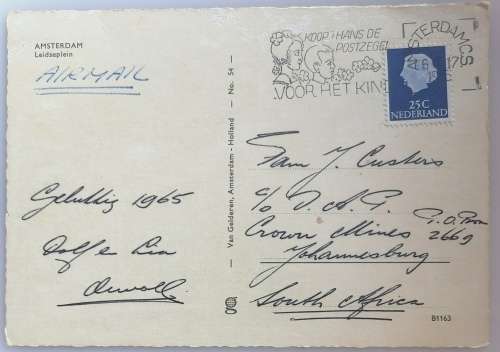 AMSTERDAM
Leidseplein
AIRMAIL
Gelukkig 1965
Dolf e Lia
No. 54 - Van Gelderen, Amsterdam - Holland
KOOP THANS DE
POSTZEGEL
VOOR HET KIN
AMSTERDAM C.S.
17
25 C
NEDERLAND
Fam J. Custers
c/o D. A. P.
P.O. Box
2669
Crown Mines
Johannesburg
South Africa
B1163